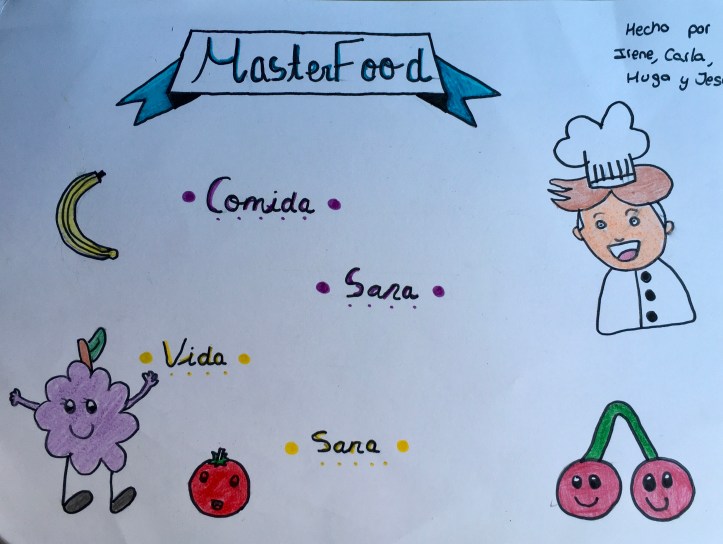 MasterFood
Hecho por
Irene, Carla,
Hugo y
Comida
Sana
Vida
Sana